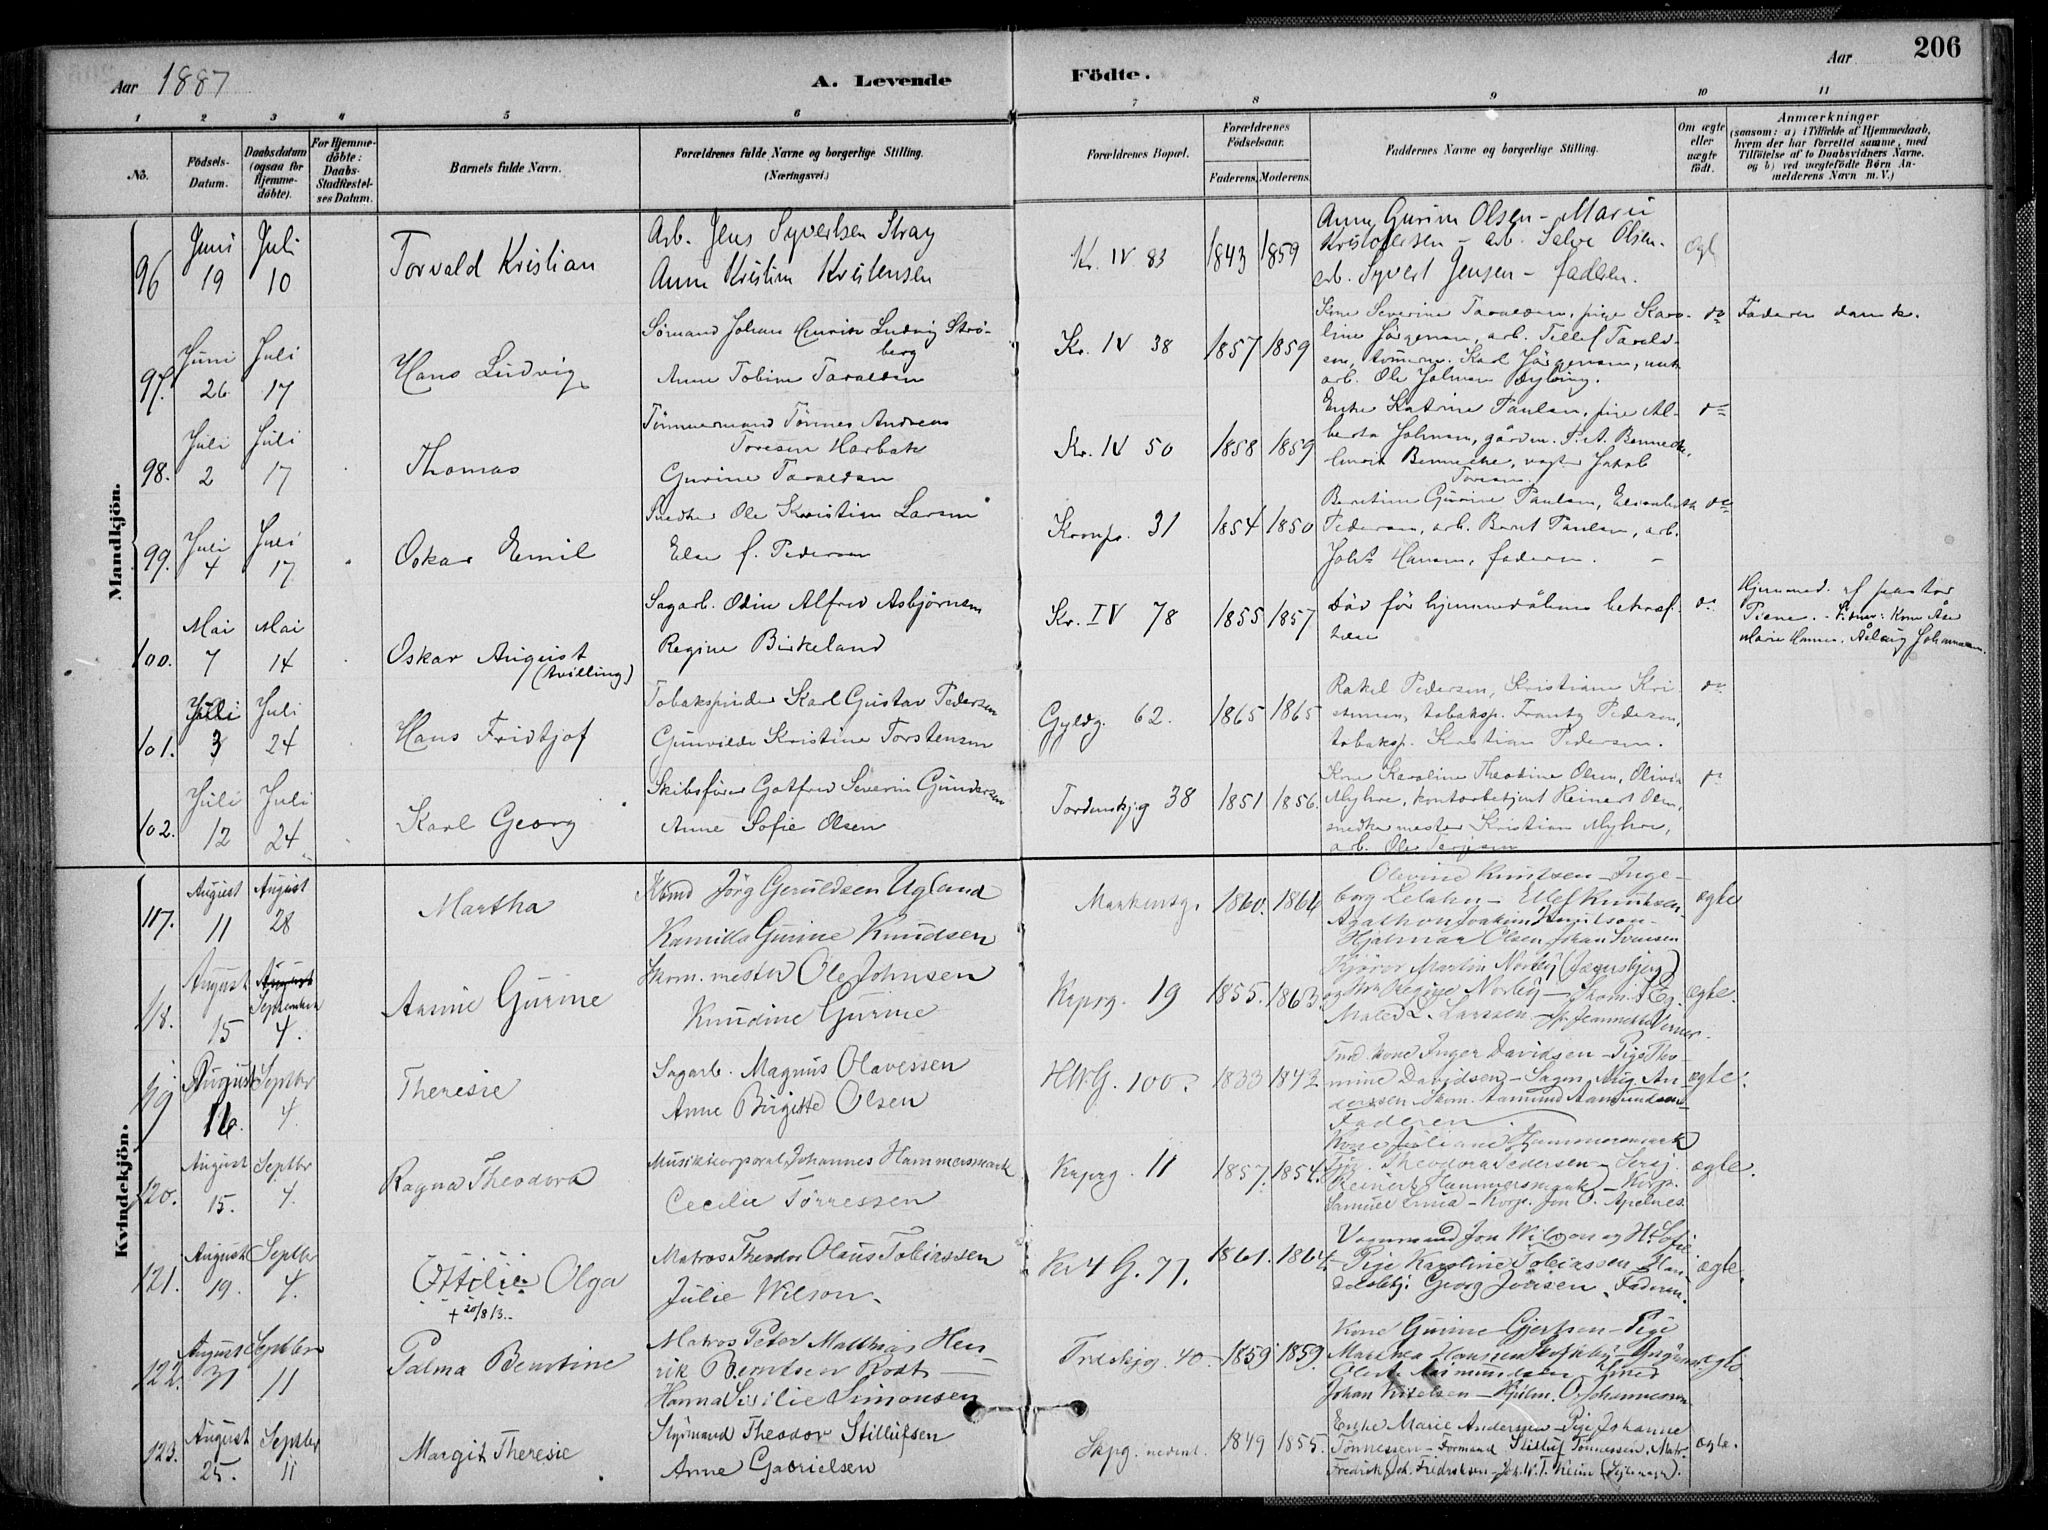 206
Aar 1887
A. Levende
Födte.
Aar
1 2 3 4 5 6 7 8 9 10 11
No.
Födsels-Datum.
Daabsdatum (ogsaa for Hjemmedöbte).
For Hjemmedöbte: Daabs-Stadfæstelses Datum.
Barnets fulde Navn.
Forældrenes fulde Navne og borgerlige Stilling.
(Næringsvei.)
Forældrenes Bopæl.
Forældrenes Födselsaar.
Faderens. Moderens.
Faddernes Navne og borgerlige Stilling.
Om ægte eller uægte födt.
Anmærkninger
(saasom: a) i Tilfælde af Hjemmedaab,
hvem der har forrettet samme, med
Tilföielse af to Daabsvidners Navne.
og b) ved uægtefödte Børn Anmelderens Navn m. V.)
Mandkjön.
96 Juni 19 Juli 10 Torvald Kristian
Arb. Jens Syvertsen Stray
Anne Kristine Kristensen
Kr. IV 83 1843 1859
Anne Gurine Olsen - Marie
Kristofersen - arb. Salve Olsen.
arb. Syvert Jensen - faderen.
ægte
97. Juni 26 Juli 17 Hans Ludvig
Sömand Johan Henrik Ludvig Ströberg
Anne Tobine Taraldsen
Kr. IV 38 1857 1859
Kone Severine Taraldsen, pige Karoline
Jörgensen, arb. Tellef Taraldsen,
tömm. Karl Jörgensen,
arb. Ole Johnsen
do Faderen dansk.
98. Juli 2 Juli 17 Thomas
Tömmermand Tönnes Andreas
Toresen Harbak
Gurine Taraldsen
Kr. IV 50 1858 1859
Enke Katrine Paulsen, pige Alberta
Johnsen, gårdm. Bennecke,
Bennecke, vagtm Jakob
Toresen.
do
99. Juli 4 Juli 17 Oskar Emil
Snedker Ole Kristian Larsen
Else f. Pedersen
Kronpr. 31 1854 1850
Berntine Gurine Paulsen, Elisabeth
Pedersen, arb. Bernt Paulsen, arb.
Johs Hansen, faderen.
do
100. Mai 7 Mai 14 Oskar August
(tvilling)
Sagarb. Odin Alfred Asbjörnsen
Regine Birkeland
Kr. IV 78 1855 1857
Död för hjemmedåbens bekræftelse
do
Hjemmed. af pastor
Vidner: Kone Åse
Marie Hansen, Åslaug Johannesen.
101. Juli 3 Juli 24 Hans Fridtjof
Tobakspinder Karl Gustav Pedersen
Gunvilde Kristine Torstensen
Gyldg. 62. 1865 1865
Rakel Pedersen, Kristiane Kristensen,
tobaksp. Frantz Pedersen,
tobaksp. Kristian Pedersen.
do
102. Juli 12 Juli 24 Karl Georg
Skibsförer Gotfred Severin Gundersen
Anne Sofie Olsen
Tordenskjg 38 1851 1856.
Kone Karoline Theodine Olsen, Olivia
Myhre, kontorbetjent Reinert Olsen,
snedkermester Kristian Myhre,
arb. Ole Terjesen
do
Kvindekjön.
117. August 11 August 28 Martha
Kbmd Jörg Geruldsen Ugland
Kamilla Gurine Knudsen
Markensg. 1860. 1864
Olevine Knutsen - Ingeborg
Lelahn - Ellef Knutsen
Agathon Joakim Knutson -
Hjalmar Olsen, Johan Svensen
ægte
118. August 15 September 4. Annie Gurine
Skom. mester Ole Johnsen
Knudine Gurine
Krprg. 19 1855. 1863.
Kjörer Martin Norby (Jægersberg)
og Hr Regine Norby - Skom.
Maler L. Larssen - Fr Jeannette Verner.
ægte.
119 August 16. Septbr 4. Theresie
Sagarb. Magnus Olavessen
Anne Birgitte Olsen
H.W.G. 100. 1833 1842
Tmd. kone Inger Davidsen - Pige Thomine
Davidsen - Sagm. Aug. Anderssen
Skom. Aamund Aamundsen
Faderen.
ægte.
120. August 15. Septbr 4. Ragna Theodora
Musikkorporal Johannes Hammersmark
Cecilie Törressen
Krprg. 11 1857. 1854.
Kone Juliane Hammersmark
Pige. Theodora Pedersen - Sersj.
Reinert Hammersmark - Korp.
Samuel Lund - Korp. Jon O. Apelnes.
ægte.
121. August 19. Septbr 4. Ottilie Olga
+ 20/8 13.
Matros Theodor Olaus Tobiassen
Julie Wilson.
Kr 4 G. 71. 1861. 1864.
Vognmand Jon Wilson og H. Sofie
- Pige Karoline Tobiassen - Handelsbtj.
Georg Jönsen - Faderen.
ægte.
122. August 31 Septbr 11 Palma Berntine
Matros Peter Matthias Henrik
Berntsen Rodt -
Hanna Sisilie Simonsen
Trdskjg. 40 - 1859 1859.
Kone Gurine Gjertsen - Pige
Marthea Hanssen
Olava Asmundsen
Johan Kitelsen - Hjelm. O. Johannessen
ægte
123. August 25. Septbr 11 Margit Theresie
Styrmand Theodor Stillufsen
Anne Gabrielsen
Skprg. nedent. 1849 1855.
Enke Marie Andersen - Pige Johanne
Tönnessen - Formand Stilluf Tönnessen, Matr.
Fredrik Joh. Fredriksen - Joh. W. T. Keim (Sejlmager).
ægte.